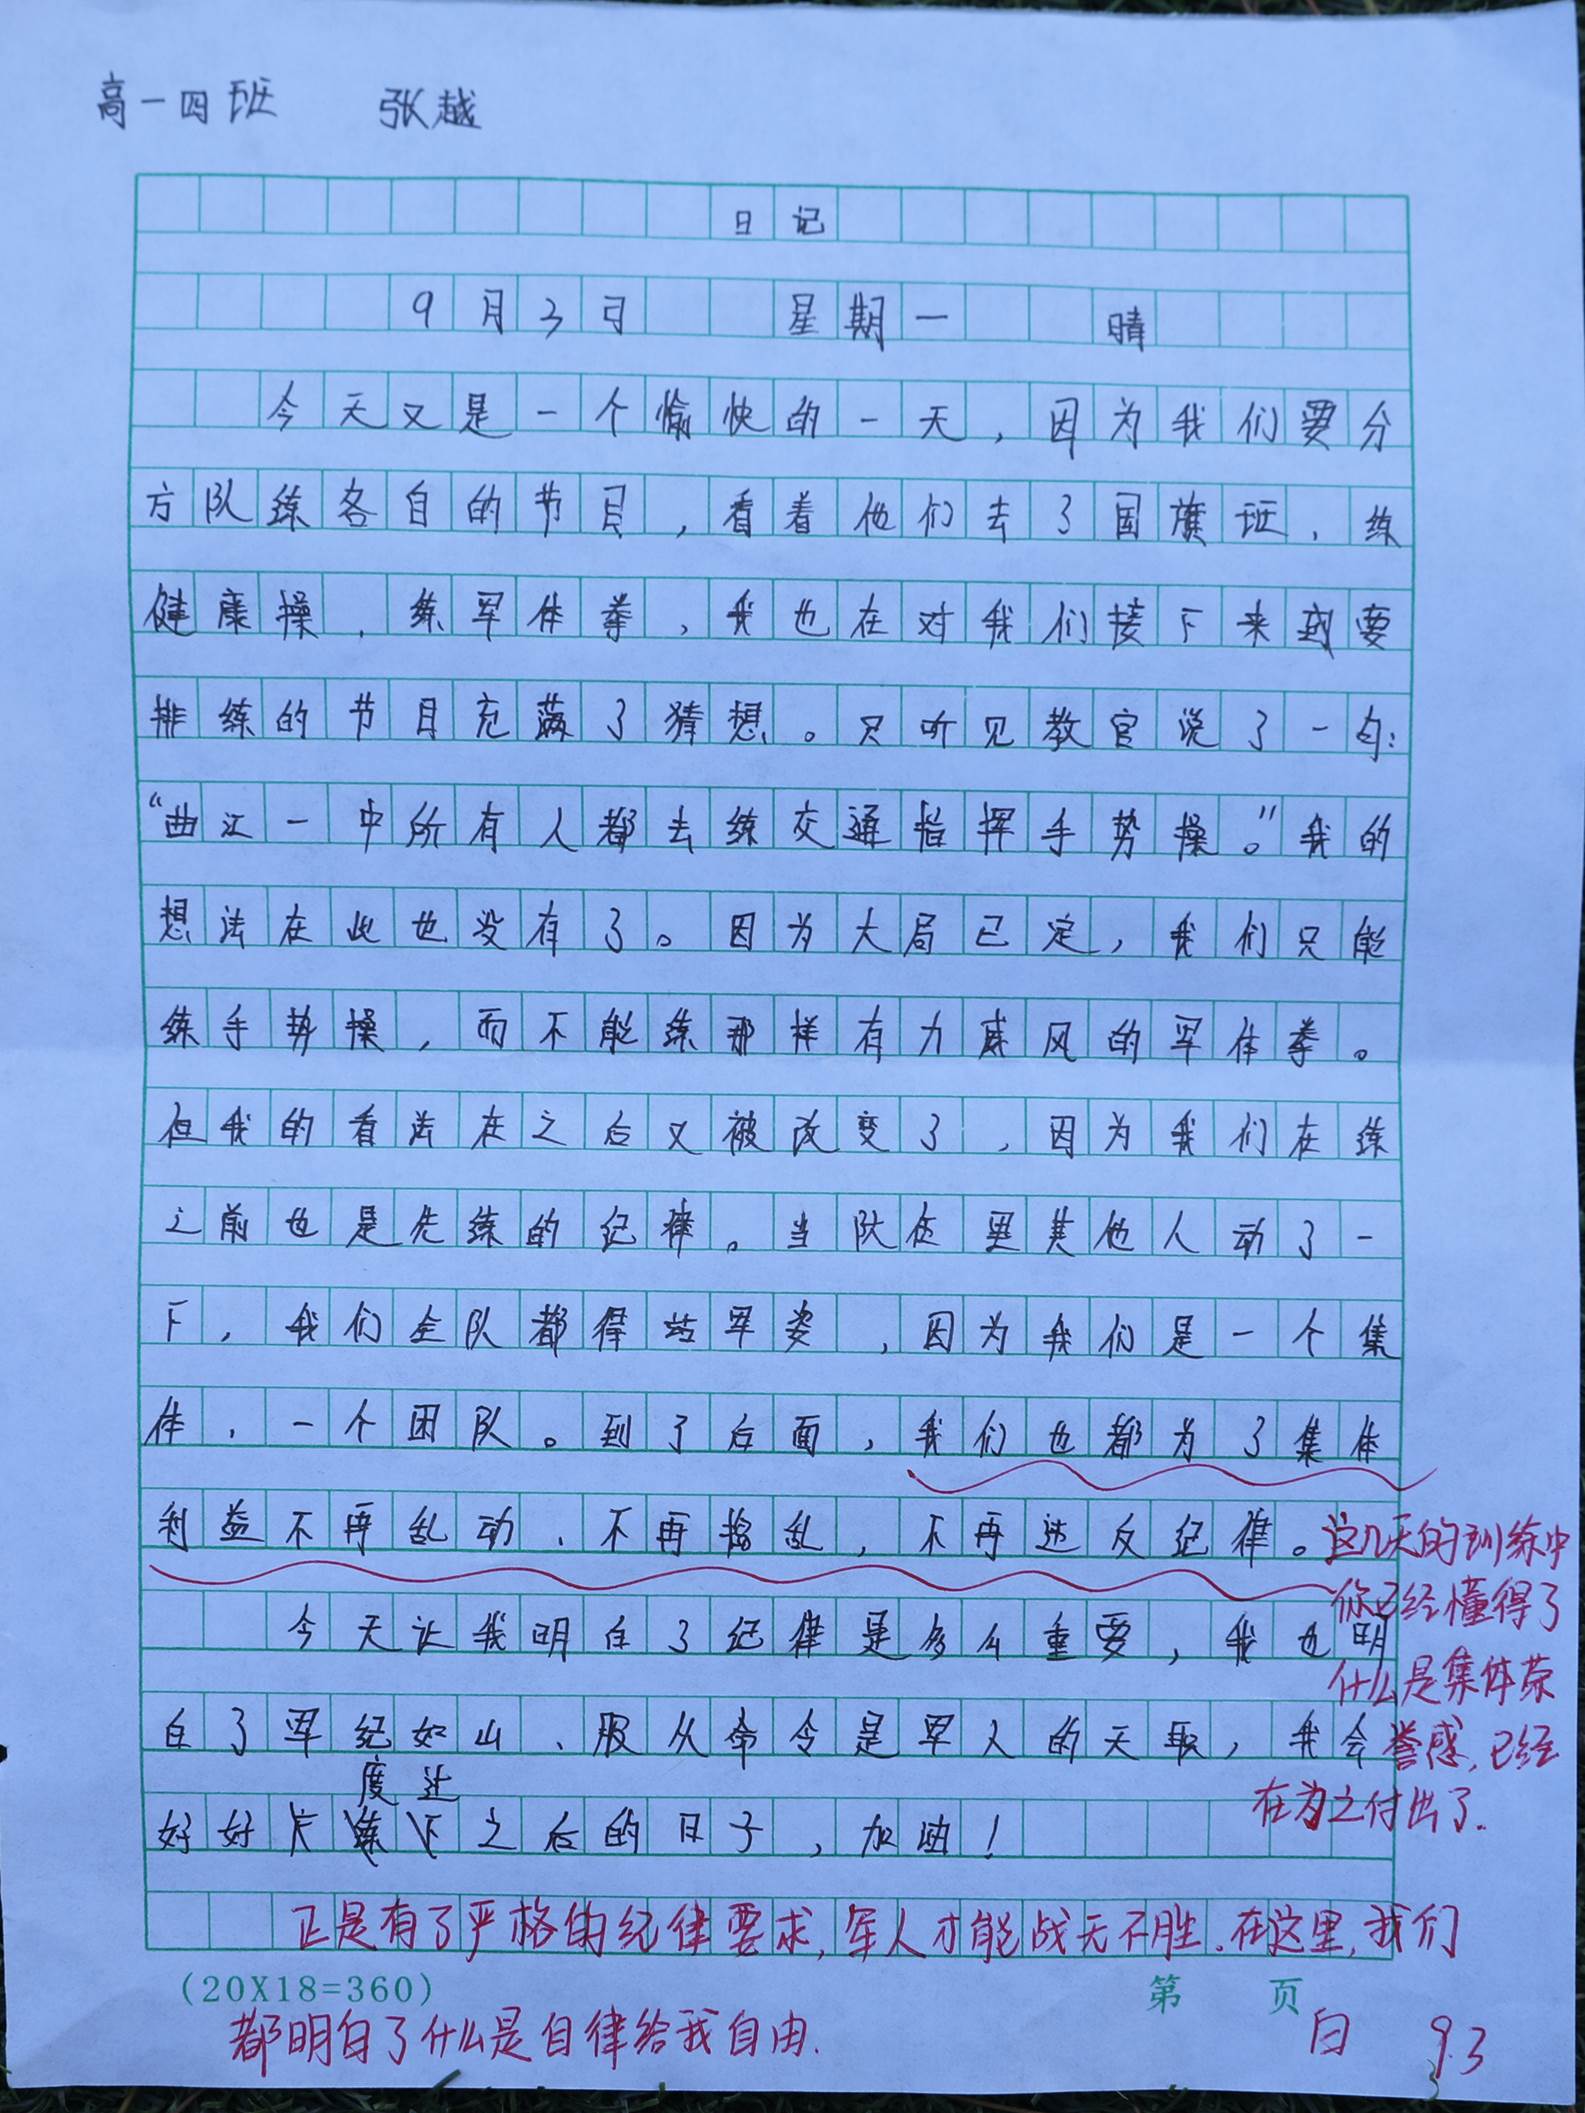 高一四班 张越
日记
9月3日 星期一 晴
今天又是一个愉快的一天，因为我们要分
方队练各自的节目，看着他们去了国旗班，练
健康操，练军体拳，我也在对我们接下来要
排练的节目充满了猜想。只听见教官说了一句：
“曲江一中所有人都去练交通指挥手势操。”我的
想法在此也没有了。因为大局已定，我们只能
练手势操，而不能练那样有力威风的军体拳。
但我的看法在之后又被改变了，因为我们在练
之前也是先练的纪律。当队伍里其他人动了一
下，我们全队都得站军姿，因为我们是一个集
体，一个团队。到了后面，我们也都为了集体
利益不再乱动、不再捣乱，不再违反纪律。
这几天的训练中
你已经懂得了
什么是集体荣
誉感，已经
在为之付出了.
今天让我明白了纪律是多么重要，我也明
白了军纪如山、服从命令是军人的天职，我会
度过
好好之后的日子，加油！
正是有了严格的纪律要求，军人才能战无不胜.在这里，我们
(20X18=360) 第 页
都明白了什么是自律给我自由.
白 9.3